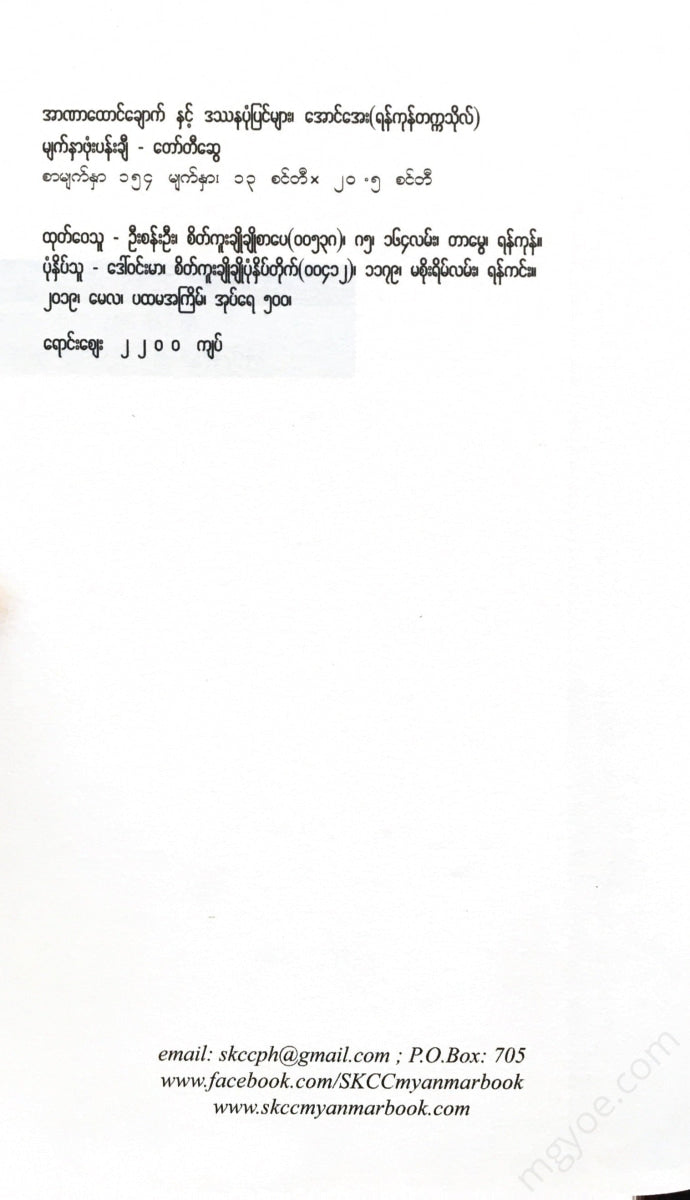 အာဏာထောင်ချောက် နှင့် ဒဿနပုံပြင်များ၊ အောင်အေး(ရန်ကုန်တက္ကသိုလ်)
မျက်နှာဖုံးပန်းချီ - တော်တီဆွေ
စာမျက်နှာ ၁၅၄ မျက်နှာ၊ ၁၃ စင်တီ× ၂၀.၅ စင်တီ
ထုတ်ဝေသူ - ဦးစန်းဦး၊ စိတ်ကူးချိုချိုစာပေ(၀၀၅၃၈)၊ ဂ၅၊ ၁၆၄လမ်း၊ တာမွေ၊ ရန်ကုန်။
ပုံနှိပ်သူ - ဒေါ်ဝင်းမာ၊ စိတ်ကူးချိုချိုပုံနှိပ်တိုက်(၀၀၄၁၂)၊ ၁၁၇၉၊ မစိုးရိမ်လမ်း၊ ရန်ကင်း။
၂၀၁၉၊ မေလ၊ ပထမအကြိမ်၊ အုပ်ရေ ၅၀၀၊
ရောင်းဈေး ၂၂၀၀ ကျပ်
email: skccph@gmail.com ; P.O.Box: 705
www.facebook.com/SKCCmyanmarbook
www.skccmyanmarbook.com
mgyoe.com